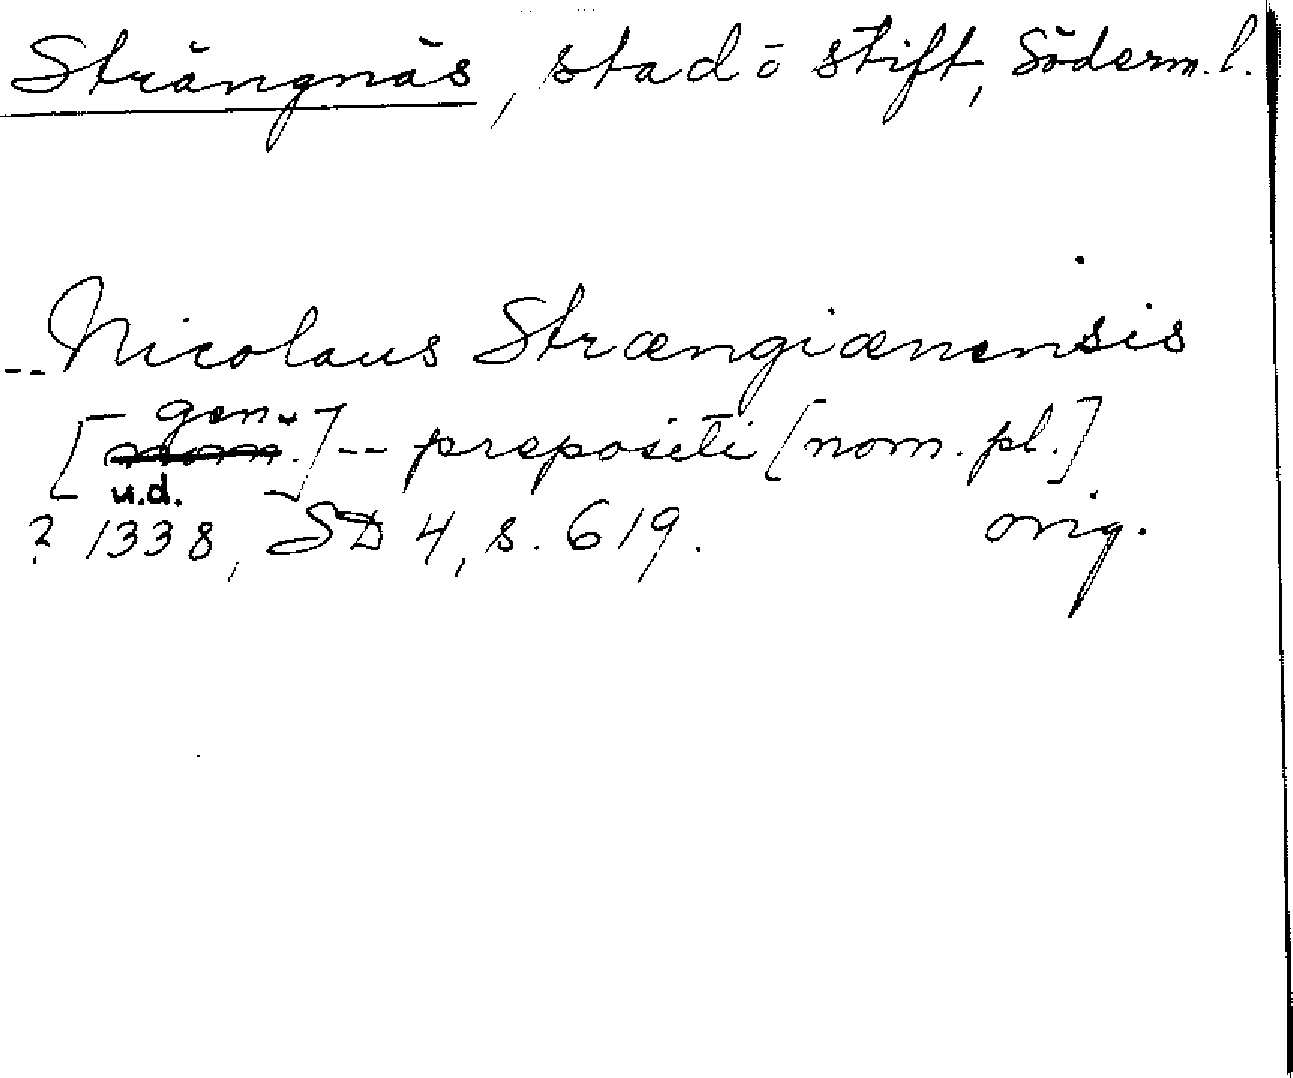 Strängnäs, stad o stift, Söderm. l.
-- Nicolaus Strængiænensis
gen.
[nom.] -- prepositi [nom. pl.]
u.d.
? 1338, SD 4, s. 619. orig.